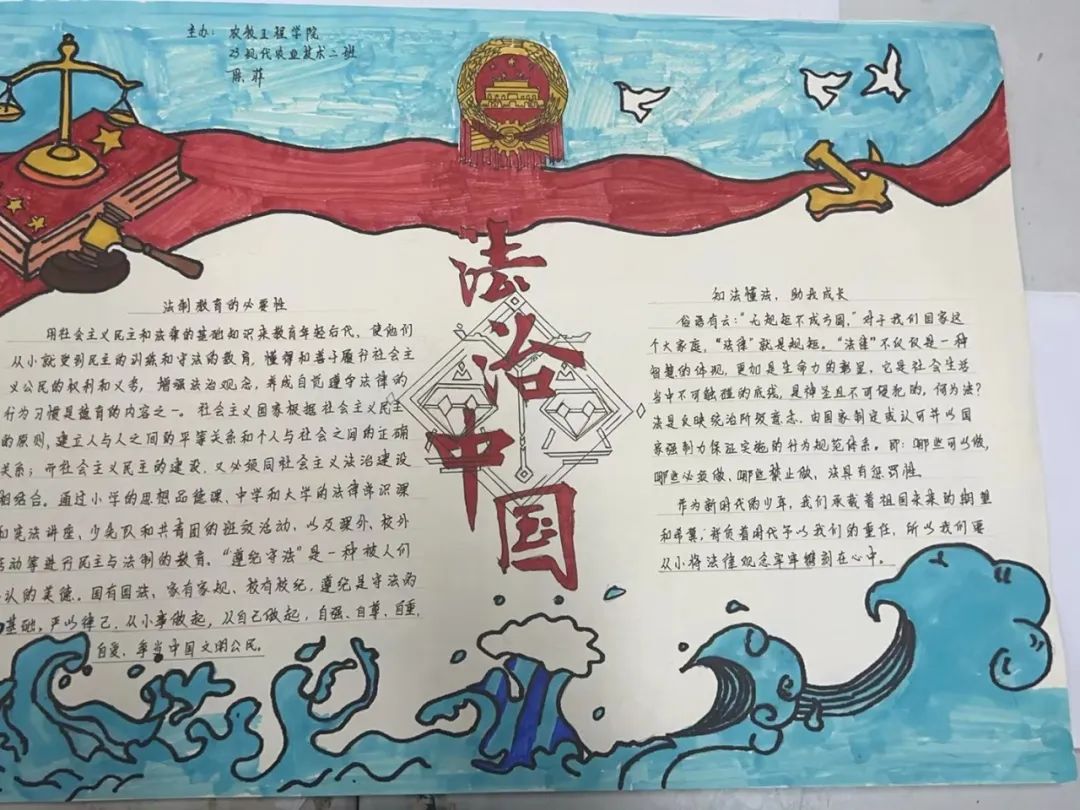 主办：农牧工程学院
23现代农业技术二班
法治中国
法制教育的必要性
用社会主义民主和法律的基础知识来教育年轻后代，使他们
从小就受到民主的训练和守法的教育，懂得和善于履行社会主
义公民的权利和义务，增强法治观念，养成自觉遵守法律的
行为习惯是德育的内容之一。社会主义国家根据社会主义民主
的原则，建立人与人之间的平等关系和个人与社会之间的正确
关系；而社会主义民主的建设，又必须同社会主义法治建设
结合。通过小学的思想品德课、中学和大学的法律常识课
和宪法讲座，少先队和共青团的班级活动，以及课外、校外
活动等进行民主与法制的教育。“遵纪守法”是一种被人们
认的美德。国有国法，家有家规，校有校纪，遵纪是守法的
基础。严以律己，从小事做起，从自己做起，自强、自尊、自重、
自爱、争当中国文明公民。
知法懂法，助我成长
俗语有云：“无规矩不成方圆，”对于我们国家这
个大家庭，“法律”就是规矩。“法律”不仅仅是一种
智慧的体现，更加是生命力的彰显，它是社会生活
当中不可触碰的底线，是神圣且不可侵犯的。何为法？
法是反映统治阶级意志，由国家制定或认可并以国
家强制力保证实施的行为规范体系。即：哪些可以做，
哪些必须做，哪些禁止做，法具有惩罚性。
作为新时代的少年，我们承载着祖国未来的期望
和希冀，背负着时代予以我们的重任，所以我们要
从小将法律观念牢牢镌刻在心中。